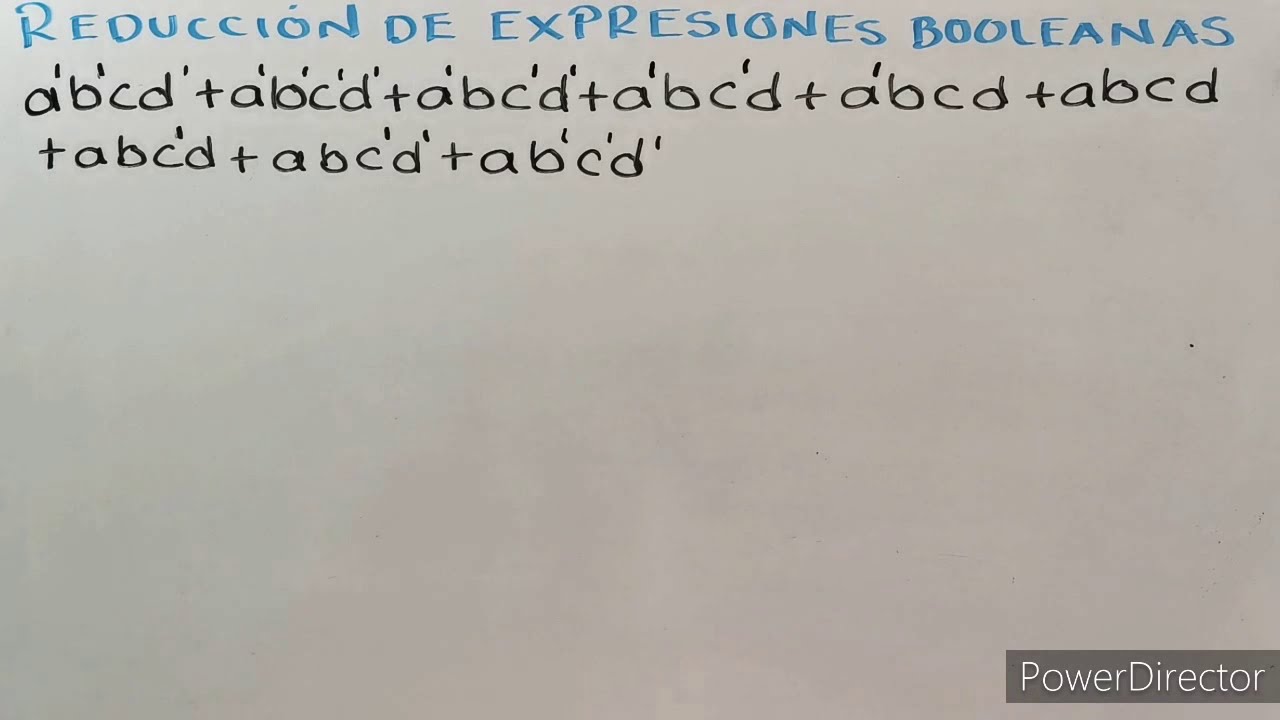 REDUCCIÓN DE EXPRESIONES BOOLEANAS
a'b'cd' + a'b'c'd' + a'bc'd' + a'bc'd + a'bcd + abcd
+ abc'd + abc'd' + ab'c'd'
PowerDirector